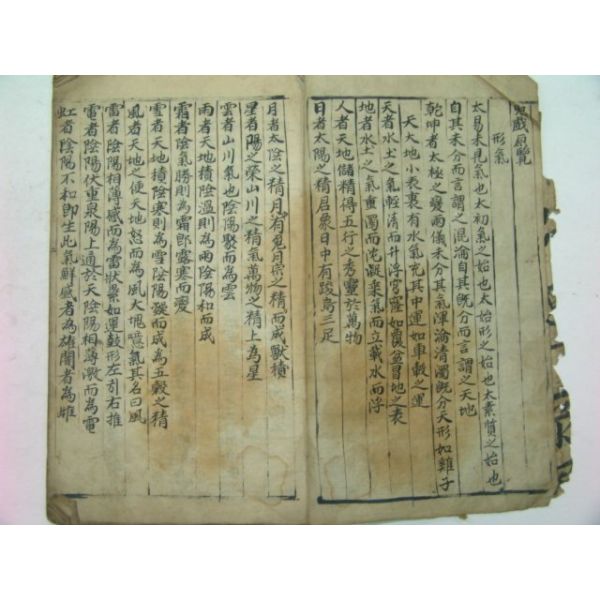 典戲原覽
形氣
太易未見氣也太初氣之始也太始形之始也太素質之始也
自其未分而言謂之混淪自其旣分而言謂之天地
乾坤者太極之變兩儀未分其氣渾淪清濁旣分天形如雞子
天大地小表裏有水氣充其中運如車轂之運
天者水土之氣輕清而升浮宮窿如覆盆冒地之表
地者水土之氣重濁而沈凝乘氣而立載水而浮
人者天地儲精得五行之秀靈於萬物
日者太陽之精居象日中有踆烏三足
月者太陰之精月有兎月宗之精而成獸積
星者陽之榮山川之精氣萬物之精上為星
雲者山川氣也陰陽聚而為雲
雨者天地積陰溫則為雨陰陽和而成
霜者陰氣勝則為霜卽露寒而變
雪者天地積陰寒則為雪陰陽凝而成為五穀之精
風者天地之使天地怒而為風大塊噫氣其名曰風
雷者陰陽相薄感而為雷狀累如運鼓形左引右推
電者陰陽伏重泉陽上通於天陰陽相薄激而為電
虹者陰陽不和卽生此氣鮮盛者為雄闇者為雌